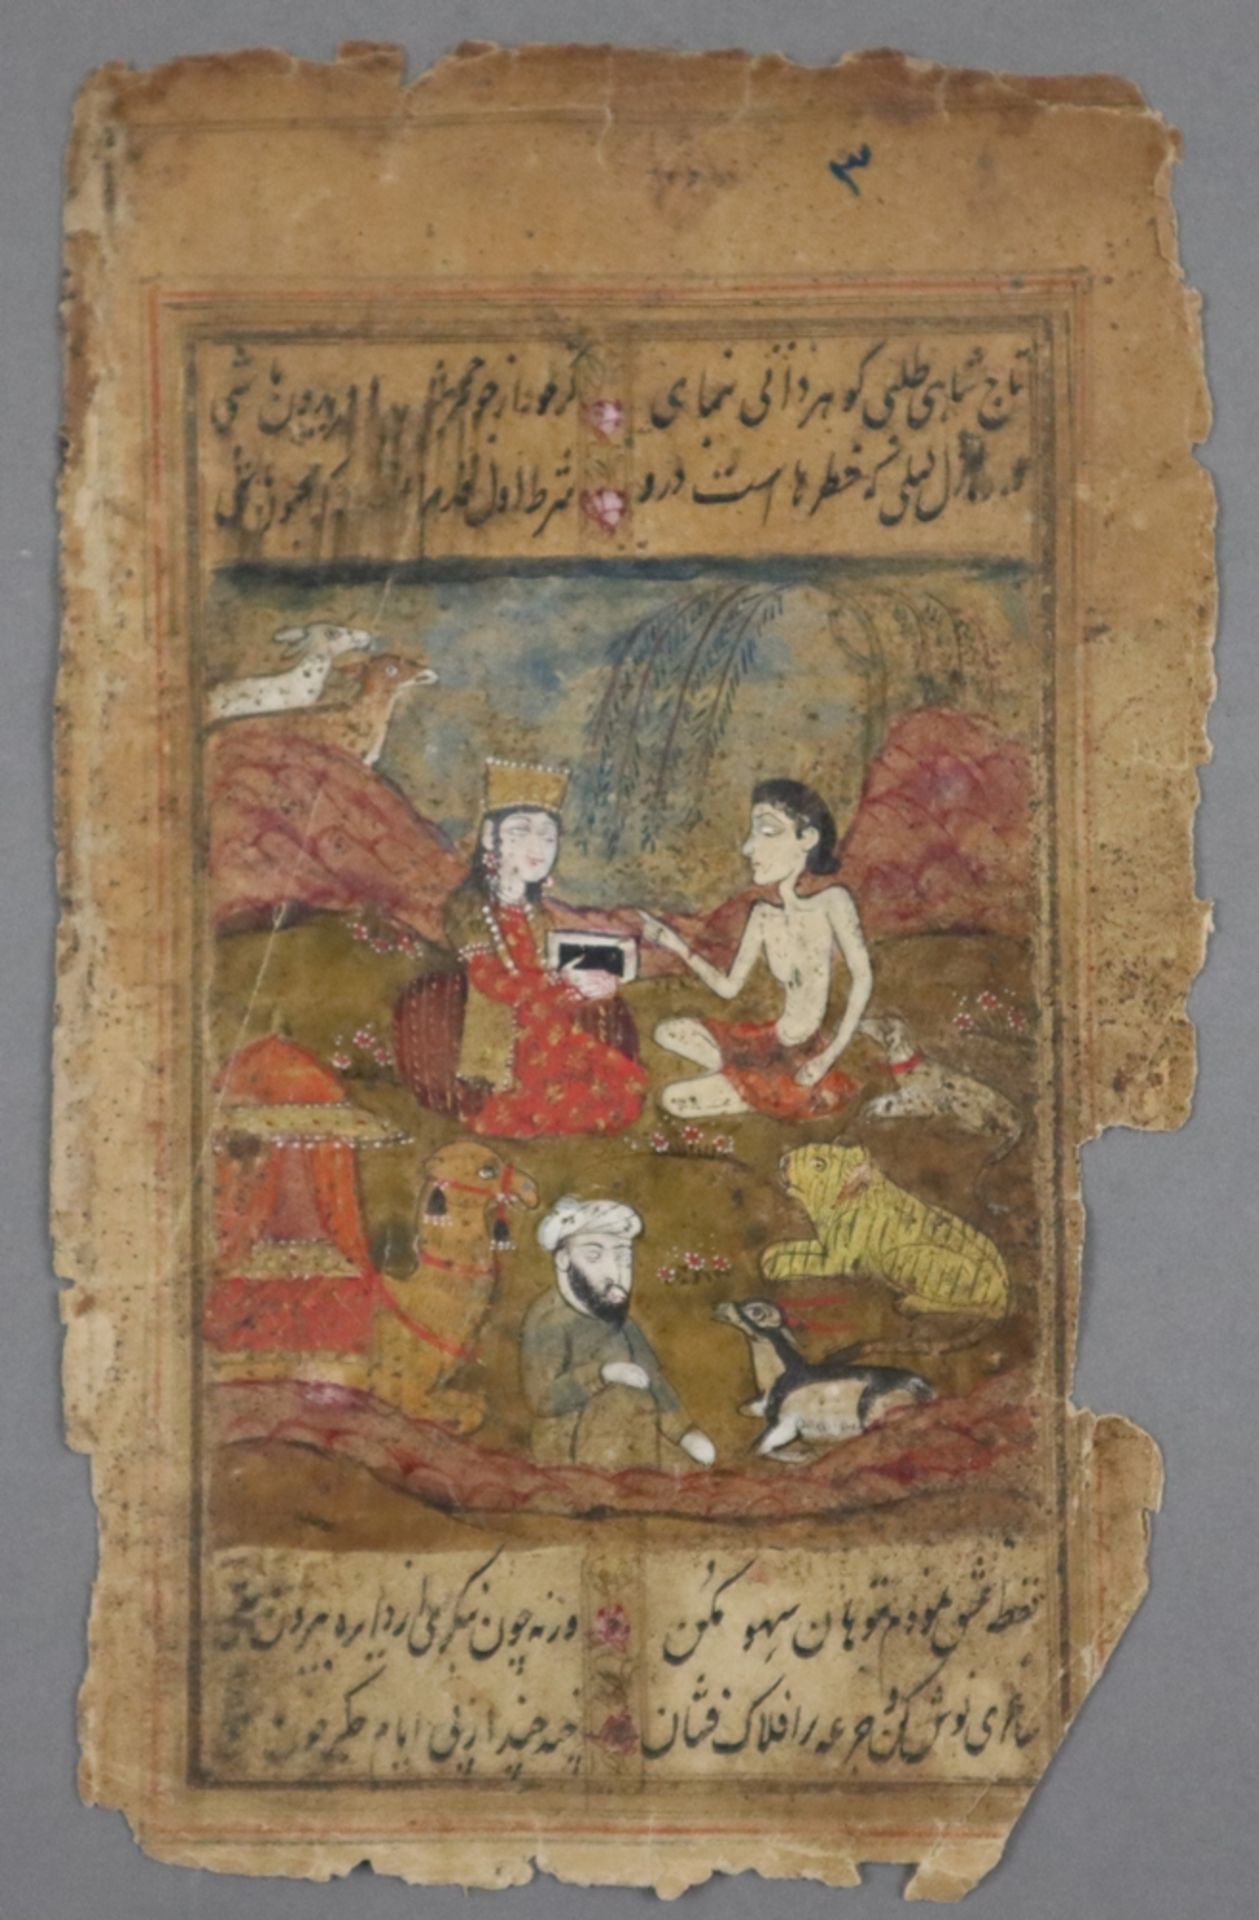 ۳
تاج شاهی طلبی گوهر ذاتی بنمای گر خود از فریدون باشی
منزل لیلی که خطرها است درو شرط اول قدم که مجنون باشی
نقطه عشق نمودم بتو هان سهو مکن ورنه چون بنگری از دایره بیرون
ساغری نوش کن جرعه بر افلاک فشان چند چند از پی ایام جگر خون